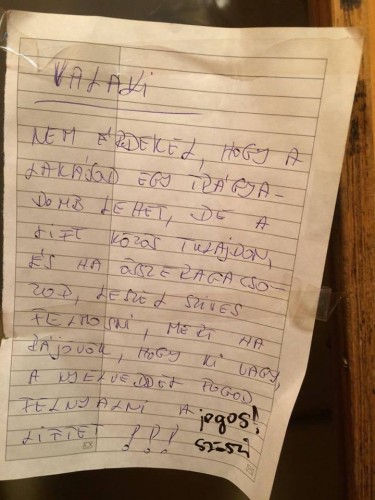 VALAKI
NEM ÉRDEKEL, HOGY A
LAKÁSOD EGY TRÁGYA-
DOMB LEHET, DE A
LIFT KÖZÖS TULAJDON,
ÉS HA ÖSSZERAGACSO-
ZOD, LESZEL SZIVES
FELMOSNI, MERT HA
RÁJÖVÖK, HOGY KI VAGY,
A NYELVEDDEL FOGOD
FELNYALNI A jogos!
LIFTET !!! szeszi